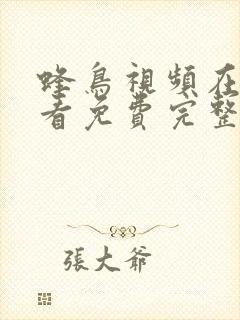 蜂鳥視頻在
看免費完整
張大爺